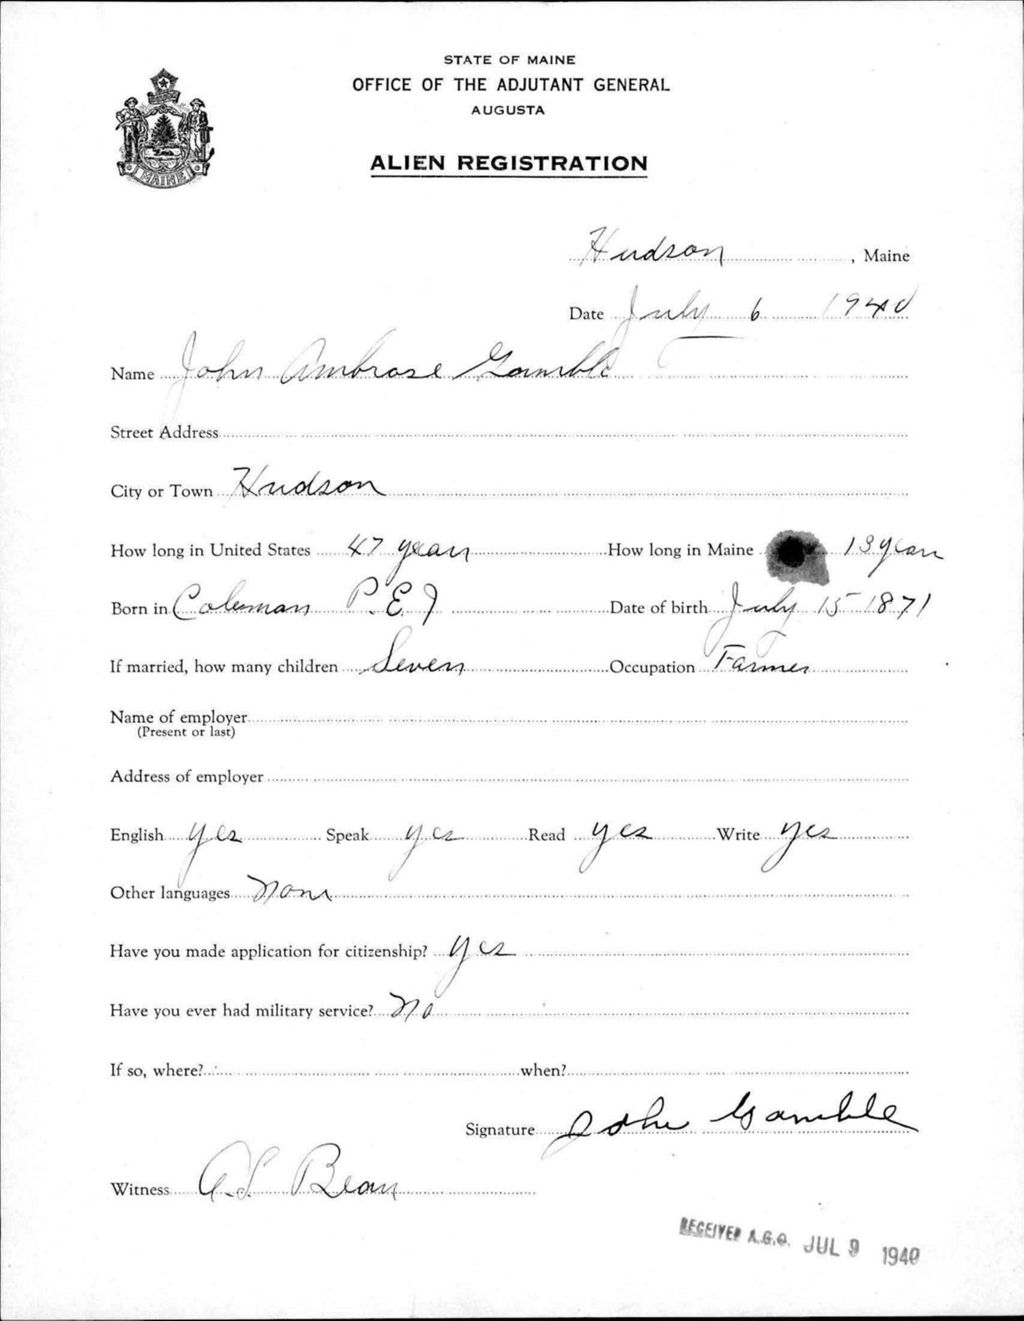 STATE OF MAINE
OFFICE OF THE ADJUTANT GENERAL
AUGUSTA
ALIEN REGISTRATION
MAINE
Hudson, Maine
Date July 6 1940
Name John Ambrose Gamble
Street Address
City or Town Hudson
How long in United States 47 years How long in Maine 13 years
Born in Coleman P.E.I Date of birth July 15 1871
If married, how many children Seven Occupation Farmer
Name of employer
(Present or last)
Address of employer
English yes Speak yes Read yes Write yes
Other languages None
Have you made application for citizenship? yes
Have you ever had military service? No
If so, where? when?
Signature John Gamble
Witness A.L. Bean
RECEIVED A.G.O. JUL 9 1940